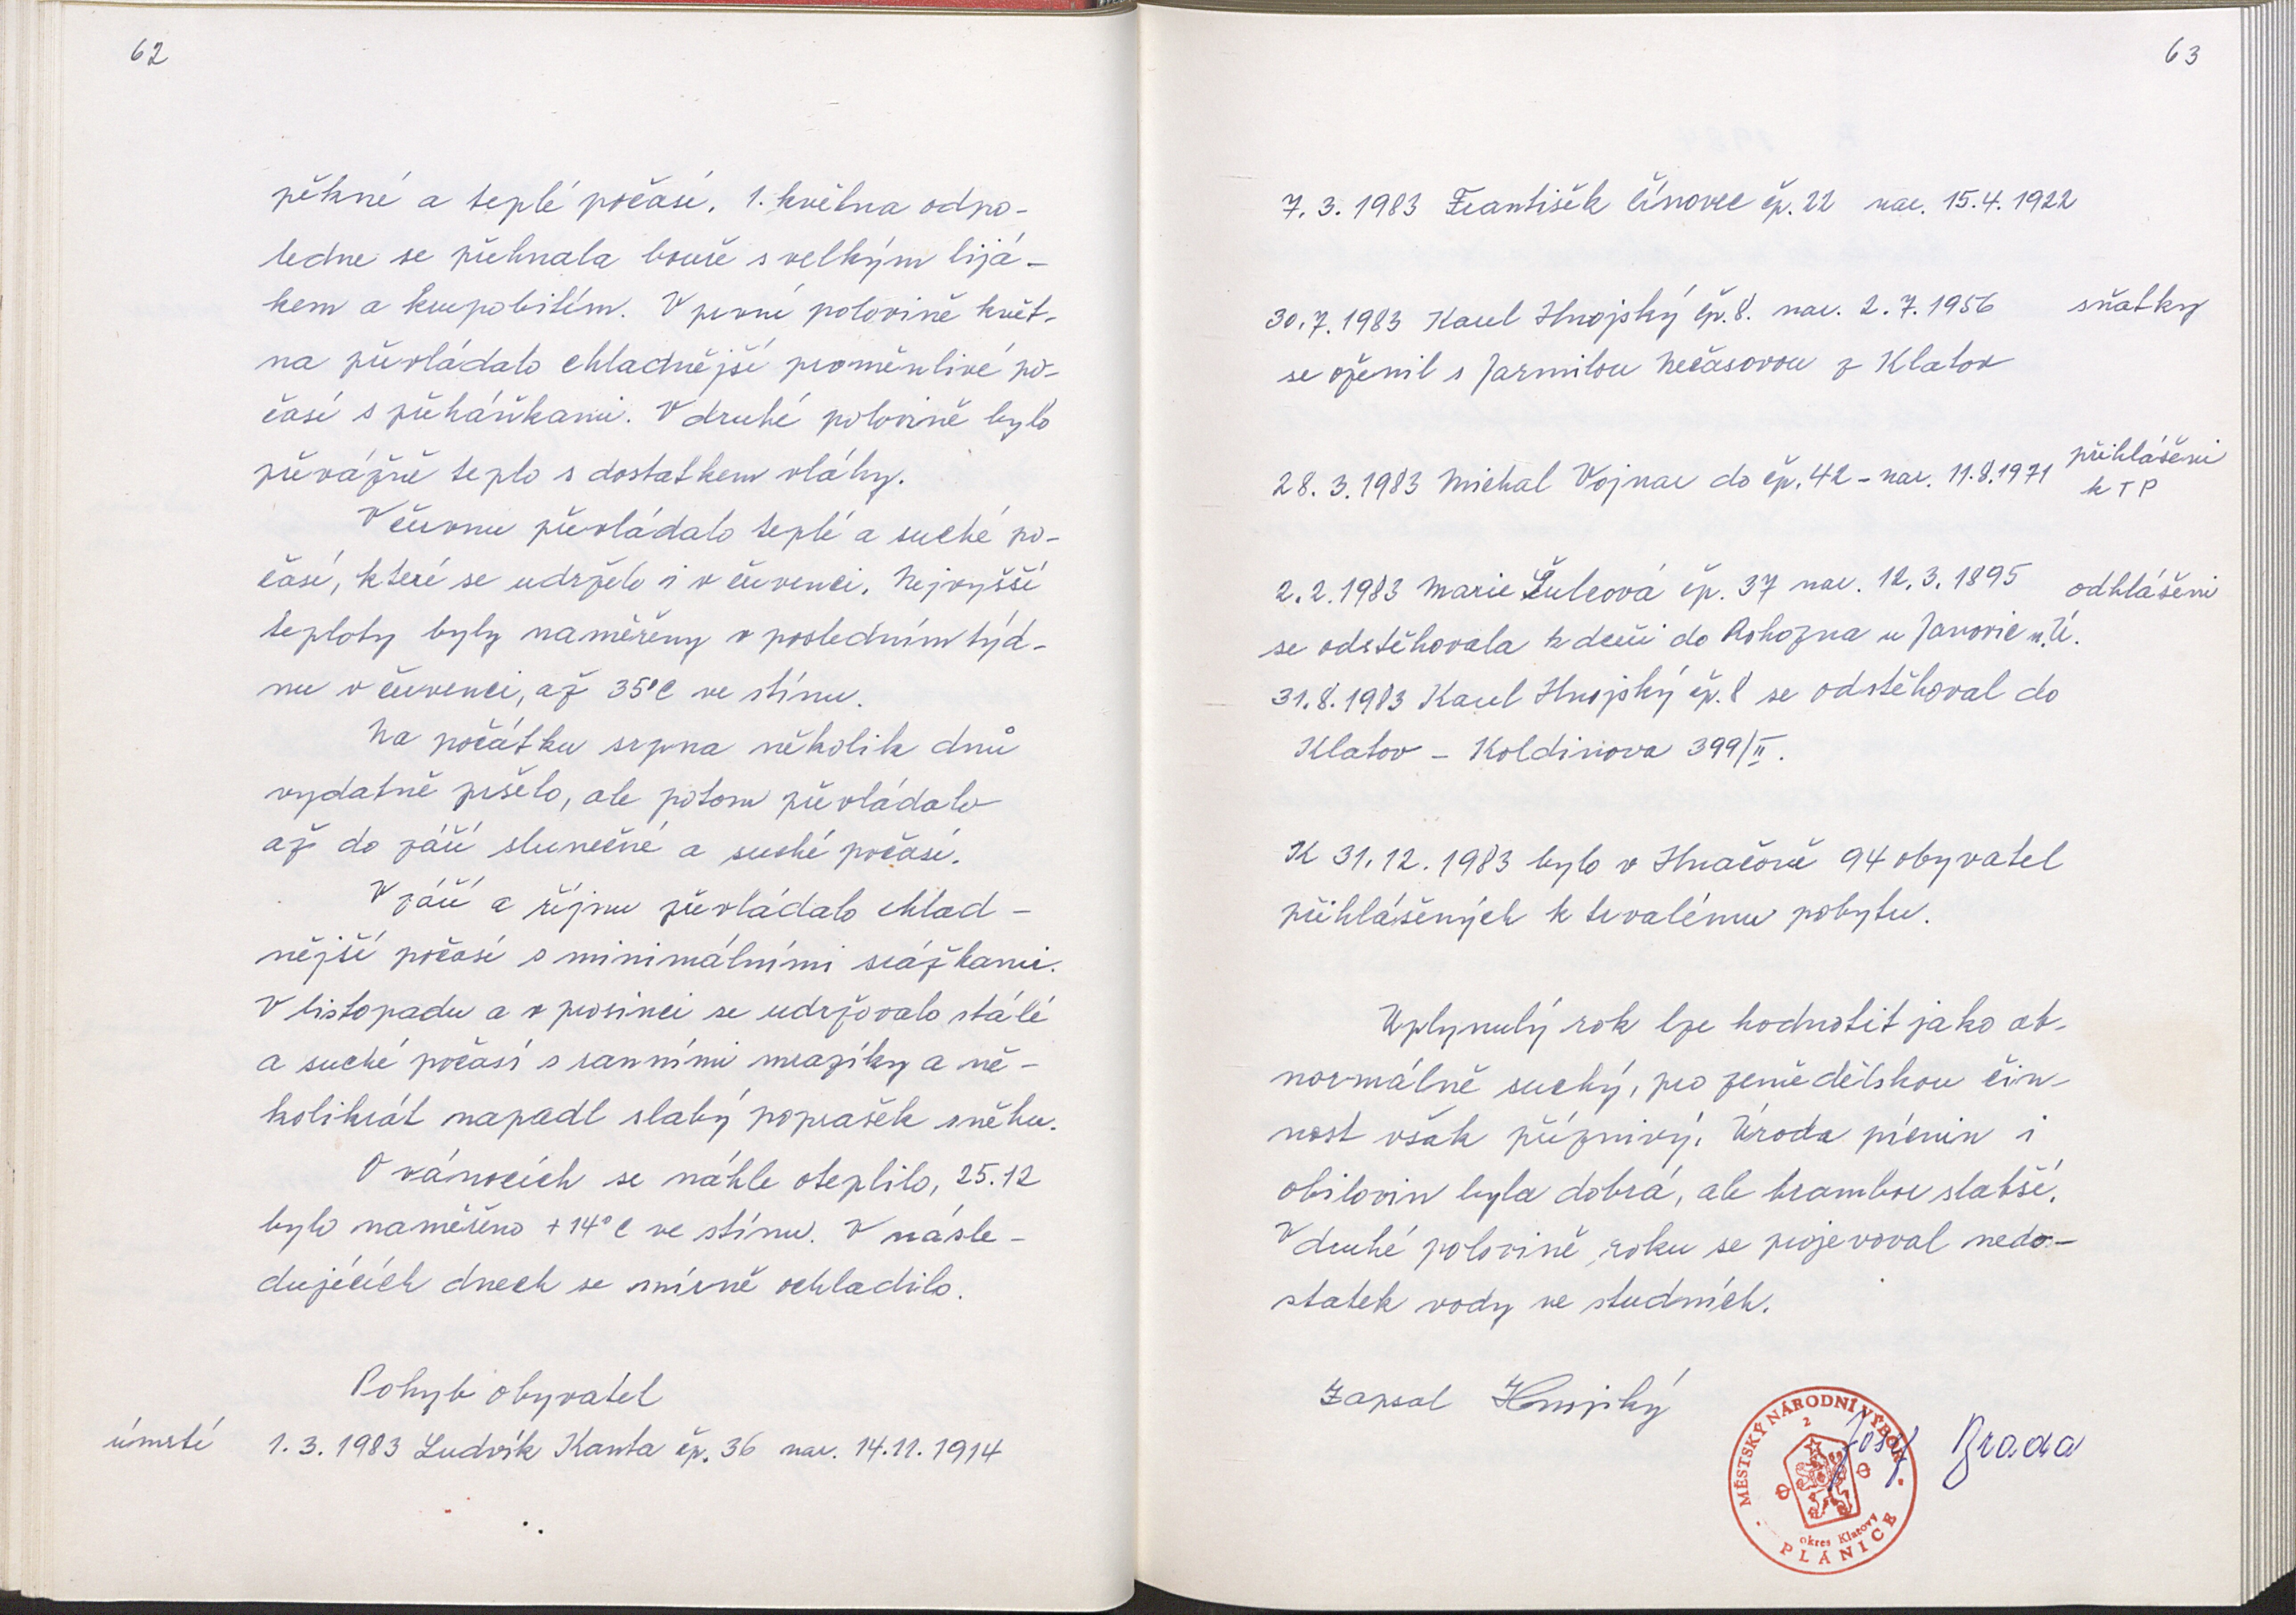 62
pěkné a teplé počasí. 1. května odpo-
ledne se přehnala bouře s velkým lijá-
kem a krupobitím. V první polovině květ-
na převládalo chladnější proměnlivé po-
časí s přeháňkami. V druhé polovině bylo
převážně teplo s dostatkem vláhy.
V červnu převládalo teplé a suché po-
časí, které se udrželo i v červenci. Nejvyšší
teploty byly naměřeny v posledním týd-
nu v červenci, až 35°C ve stínu.
Na počátku srpna několik dnů
vydatně pršelo, ale potom převládalo
až do září slunečné a suché počasí.
V září a říjnu převládalo chlad-
nější počasí s minimálními srážkami.
V listopadu a v prosinci se udržovalo stálé
a suché počasí s ranními mrazíky a ně-
kolikrát napadl slabý poprašek sněhu.
O vánocích se náhle oteplilo, 25.12
bylo naměřeno +14°C ve stínu. V násle-
dujících dnech se mírně ochladilo.
Pohyb obyvatel
úmrtí 1.3.1983 Ludvík Kanta čp. 36 nar. 14.11.1914
63
7.3.1983 František Čínovec čp. 22 nar. 15.4.1922
30.7.1983 Karel Hnojský čp. 8. nar. 2.7.1956 sňatky
se oženil s Jarmilou Nečasovou z Klatov
28.3.1983 Michal Vojnar do čp. 42 - nar. 11.8.1971 přihlášeni
k TP
2.2.1983 Marie Šulcová čp. 37 nar. 12.3.1895 odhlášeni
se odstěhovala k dceři do Rohozna u Janovic n.Ú.
31.8.1983 Karel Hnojský čp. 8 se odstěhoval do
Klatov - Koldinova 399/II.
K 31.12.1983 bylo v Hnačově 94 obyvatel
přihlášených k trvalému pobytu.
Uplynulý rok lze hodnotit jako ab-
normálně suchý, pro zemědělskou čin-
nost však příznivý. Úroda pícnin i
obilovin byla dobrá, ale brambor slabší.
V druhé polovině roku se projevoval nedo-
statek vody ve studních.
Zapsal Hnojský
Josef Brada
MĚSTSKÝ NÁRODNÍ VÝBOR
2
okres Klatovy
PLÁNICE